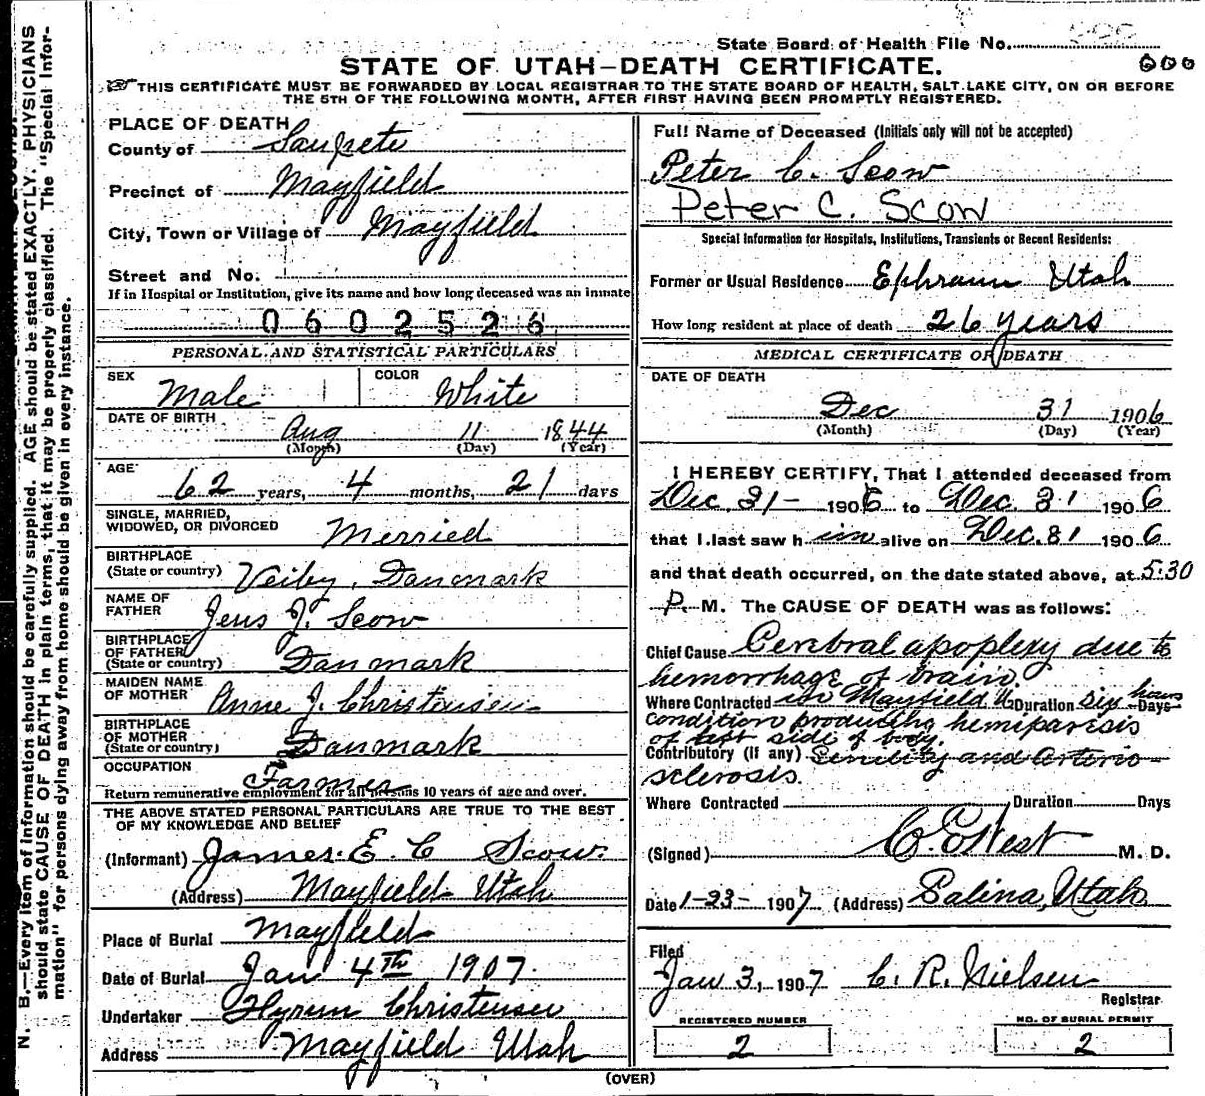 State Board of Health File No.
STATE OF UTAH—DEATH CERTIFICATE.
600
THIS CERTIFICATE MUST BE FORWARDED BY LOCAL REGISTRAR TO THE STATE BOARD OF HEALTH, SALT LAKE CITY, ON OR BEFORE
THE 5TH OF THE FOLLOWING MONTH, AFTER FIRST HAVING BEEN PROMPTLY REGISTERED.
N. B.—Every item of information should be carefully supplied. AGE should be stated EXACTLY. PHYSICIANS
should state CAUSE OF DEATH in plain terms, that it may be properly classified. The "Special Infor-
mation" for persons dying away from home should be given in every instance.
PLACE OF DEATH
County of Sanpete
Precinct of Mayfield
City, Town or Village of Mayfield
Street and No.
If in Hospital or Institution, give its name and how long deceased was an inmate
0602526
PERSONAL AND STATISTICAL PARTICULARS
SEX Male COLOR White
DATE OF BIRTH Aug 11 1844
(Month) (Day) (Year)
AGE 62 years, 4 months, 21 days
SINGLE, MARRIED,
WIDOWED, OR DIVORCED Merried
BIRTHPLACE
(State or country) Veiby, Danmark
NAME OF
FATHER Jens J. Scow
BIRTHPLACE
OF FATHER
(State or country) Danmark
MAIDEN NAME
OF MOTHER Anne J. Christensen
BIRTHPLACE
OF MOTHER
(State or country) Danmark
OCCUPATION Farmer
Return remunerative employment for all persons 10 years of age and over.
THE ABOVE STATED PERSONAL PARTICULARS ARE TRUE TO THE BEST
OF MY KNOWLEDGE AND BELIEF
(Informant) James. E. C Scow.
(Address) Mayfield Utah
Place of Burial Mayfield
Date of Burial Jan 4th 1907.
Undertaker Hyrum Christensen
Address Mayfield Utah
Full Name of Deceased (Initials only will not be accepted)
Peter C. Scow
Peter C. Scow
Special Information for Hospitals, Institutions, Transients or Recent Residents:
Former or Usual Residence Ephraim Utah
How long resident at place of death 26 years
MEDICAL CERTIFICATE OF DEATH
DATE OF DEATH
Dec 31 1906
(Month) (Day) (Year)
I HEREBY CERTIFY, That I attended deceased from
Dec. 31- 1906 to Dec. 31 1906
that I last saw him alive on Dec. 31 1906
and that death occurred, on the date stated above, at 5:30
P. M. The CAUSE OF DEATH was as follows:
Chief Cause Cerebral apoplexy due to
hemorrhage of brain
Where Contracted in Mayfield U. Duration six hours Days
condition producing hemiparisis
of last side of body.
Contributory (if any) Senility and Arterio-
sclerosis.
Where Contracted Duration Days
(Signed) C. E. West M. D.
Date 1-23- 1907 (Address) Salina, Utah
Filed
Jan 3, 1907 C. R. Nielsen
Registrar
REGISTERED NUMBER NO. OF BURIAL PERMIT
2 2
(OVER)